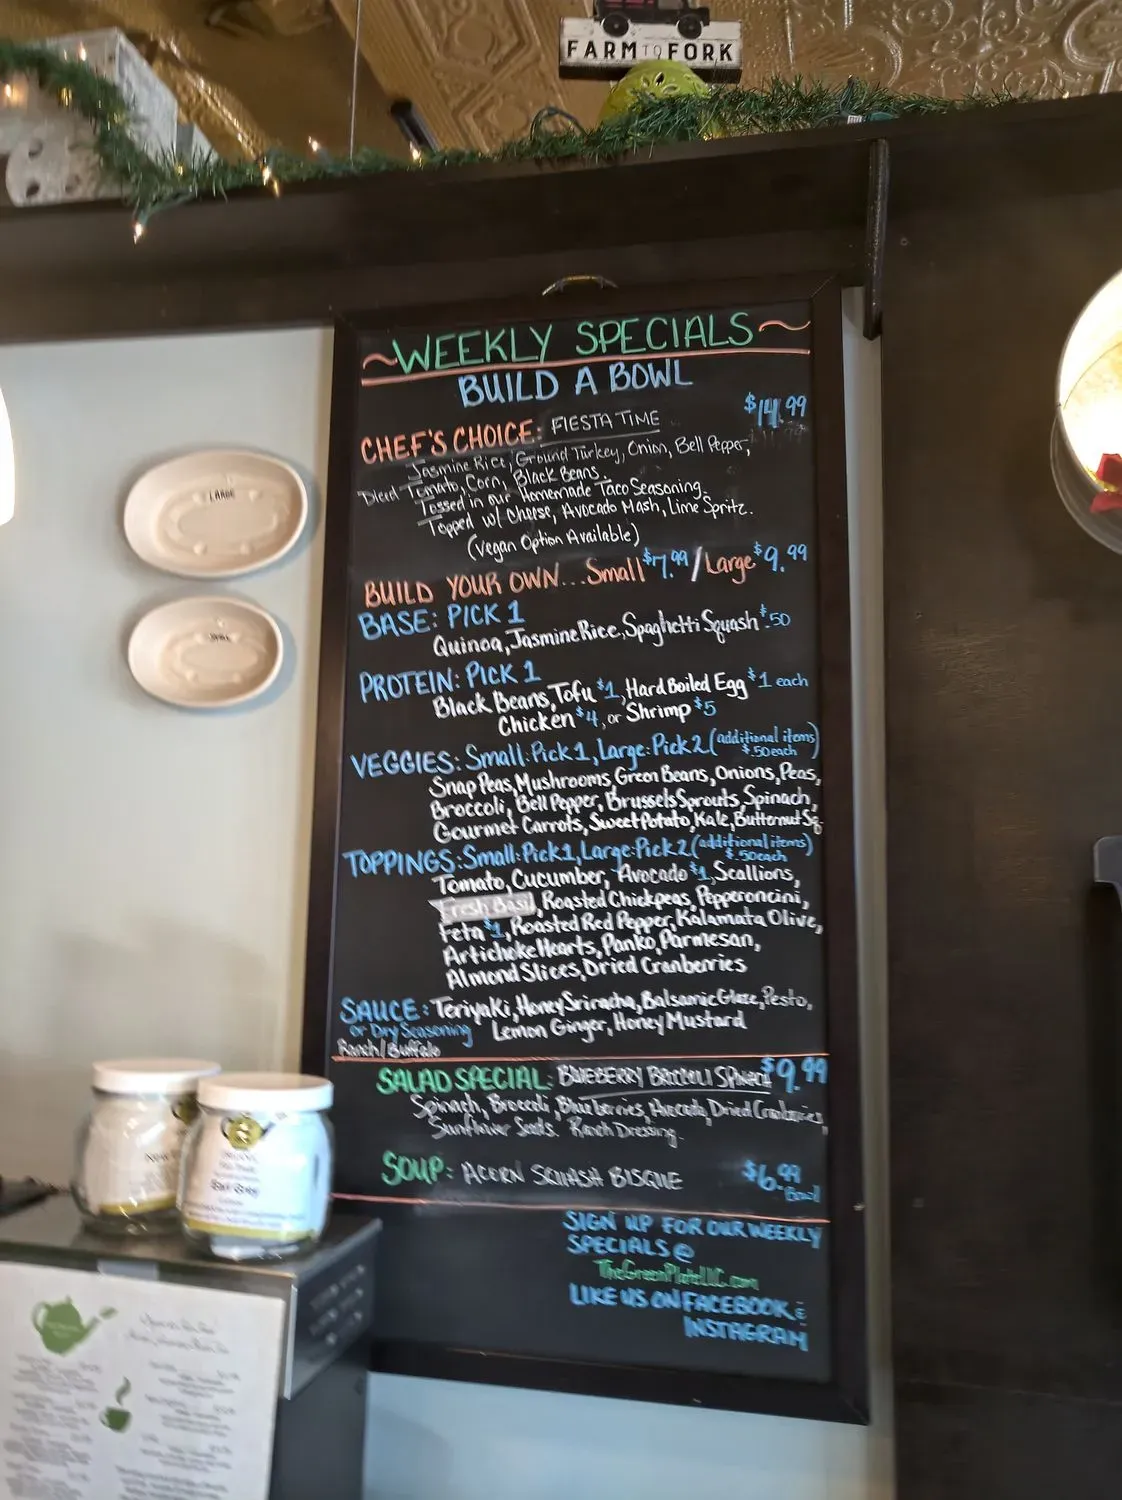 FARM TO FORK
~WEEKLY SPECIALS~
BUILD A BOWL
CHEF'S CHOICE: FIESTA TIME $14.99
Jasmine Rice, Ground Turkey, Onion, Bell Pepper,
Diced Tomato, Corn, Black Beans.
Tossed in our Homemade Taco Seasoning.
Topped w/ Cheese, Avocado Mash, Lime Spritz.
(Vegan Option Available)
BUILD YOUR OWN...Small $7.99/Large $9.99
BASE: PICK 1
Quinoa, Jasmine Rice, Spaghetti Squash $.50
PROTEIN: PICK 1
Black Beans, Tofu $1, Hard Boiled Egg $1 each
Chicken $4, or Shrimp $5
VEGGIES: Small: Pick 1, Large: Pick 2 (additional items)
$.50 each
Snap Peas, Mushrooms, Green Beans, Onions, Peas,
Broccoli, Bell Pepper, Brussels Sprouts, Spinach,
Gourmet Carrots, Sweet Potato, Kale, Butternut Sq.
TOPPINGS: Small: Pick 1, Large: Pick 2 (additional items)
$.50 each
Tomato, Cucumber, Avocado $1, Scallions,
Fresh Basil, Roasted Chickpeas, Pepperoncini,
Feta $1, Roasted Red Pepper, Kalamata Olive,
Artichoke Hearts, Panko, Parmesan,
Almond Slices, Dried Cranberries
SAUCE: Teriyaki, Honey Sriracha, Balsamic Glaze, Pesto,
or Dry Seasoning Lemon Ginger, Honey Mustard
Ranch/Buffalo
SALAD SPECIAL: BLUEBERRY BROCCOLI SPINACH $9.99
Spinach, Broccoli, Blueberries, Avocado, Dried Cranberries,
Sunflower Seeds. Ranch Dressing.
SOUP: ACORN SQUASH BISQUE $6.99
Bowl
SIGN UP FOR OUR WEEKLY
SPECIALS @
TheGreenPlateLLC.com
LIKE US ON FACEBOOK &
INSTAGRAM
LARGE
SMALL
Earl Grey